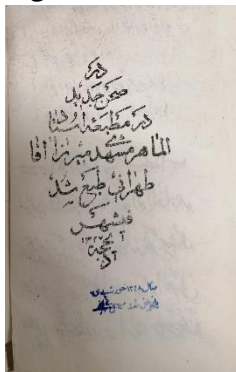 در
صحن جدید
در مطبعه استاد
الماهر مشهدی میرزا اقا
طهرانی طبع شد
فی شهر
سال ۱۲۱۸ خورشیدی